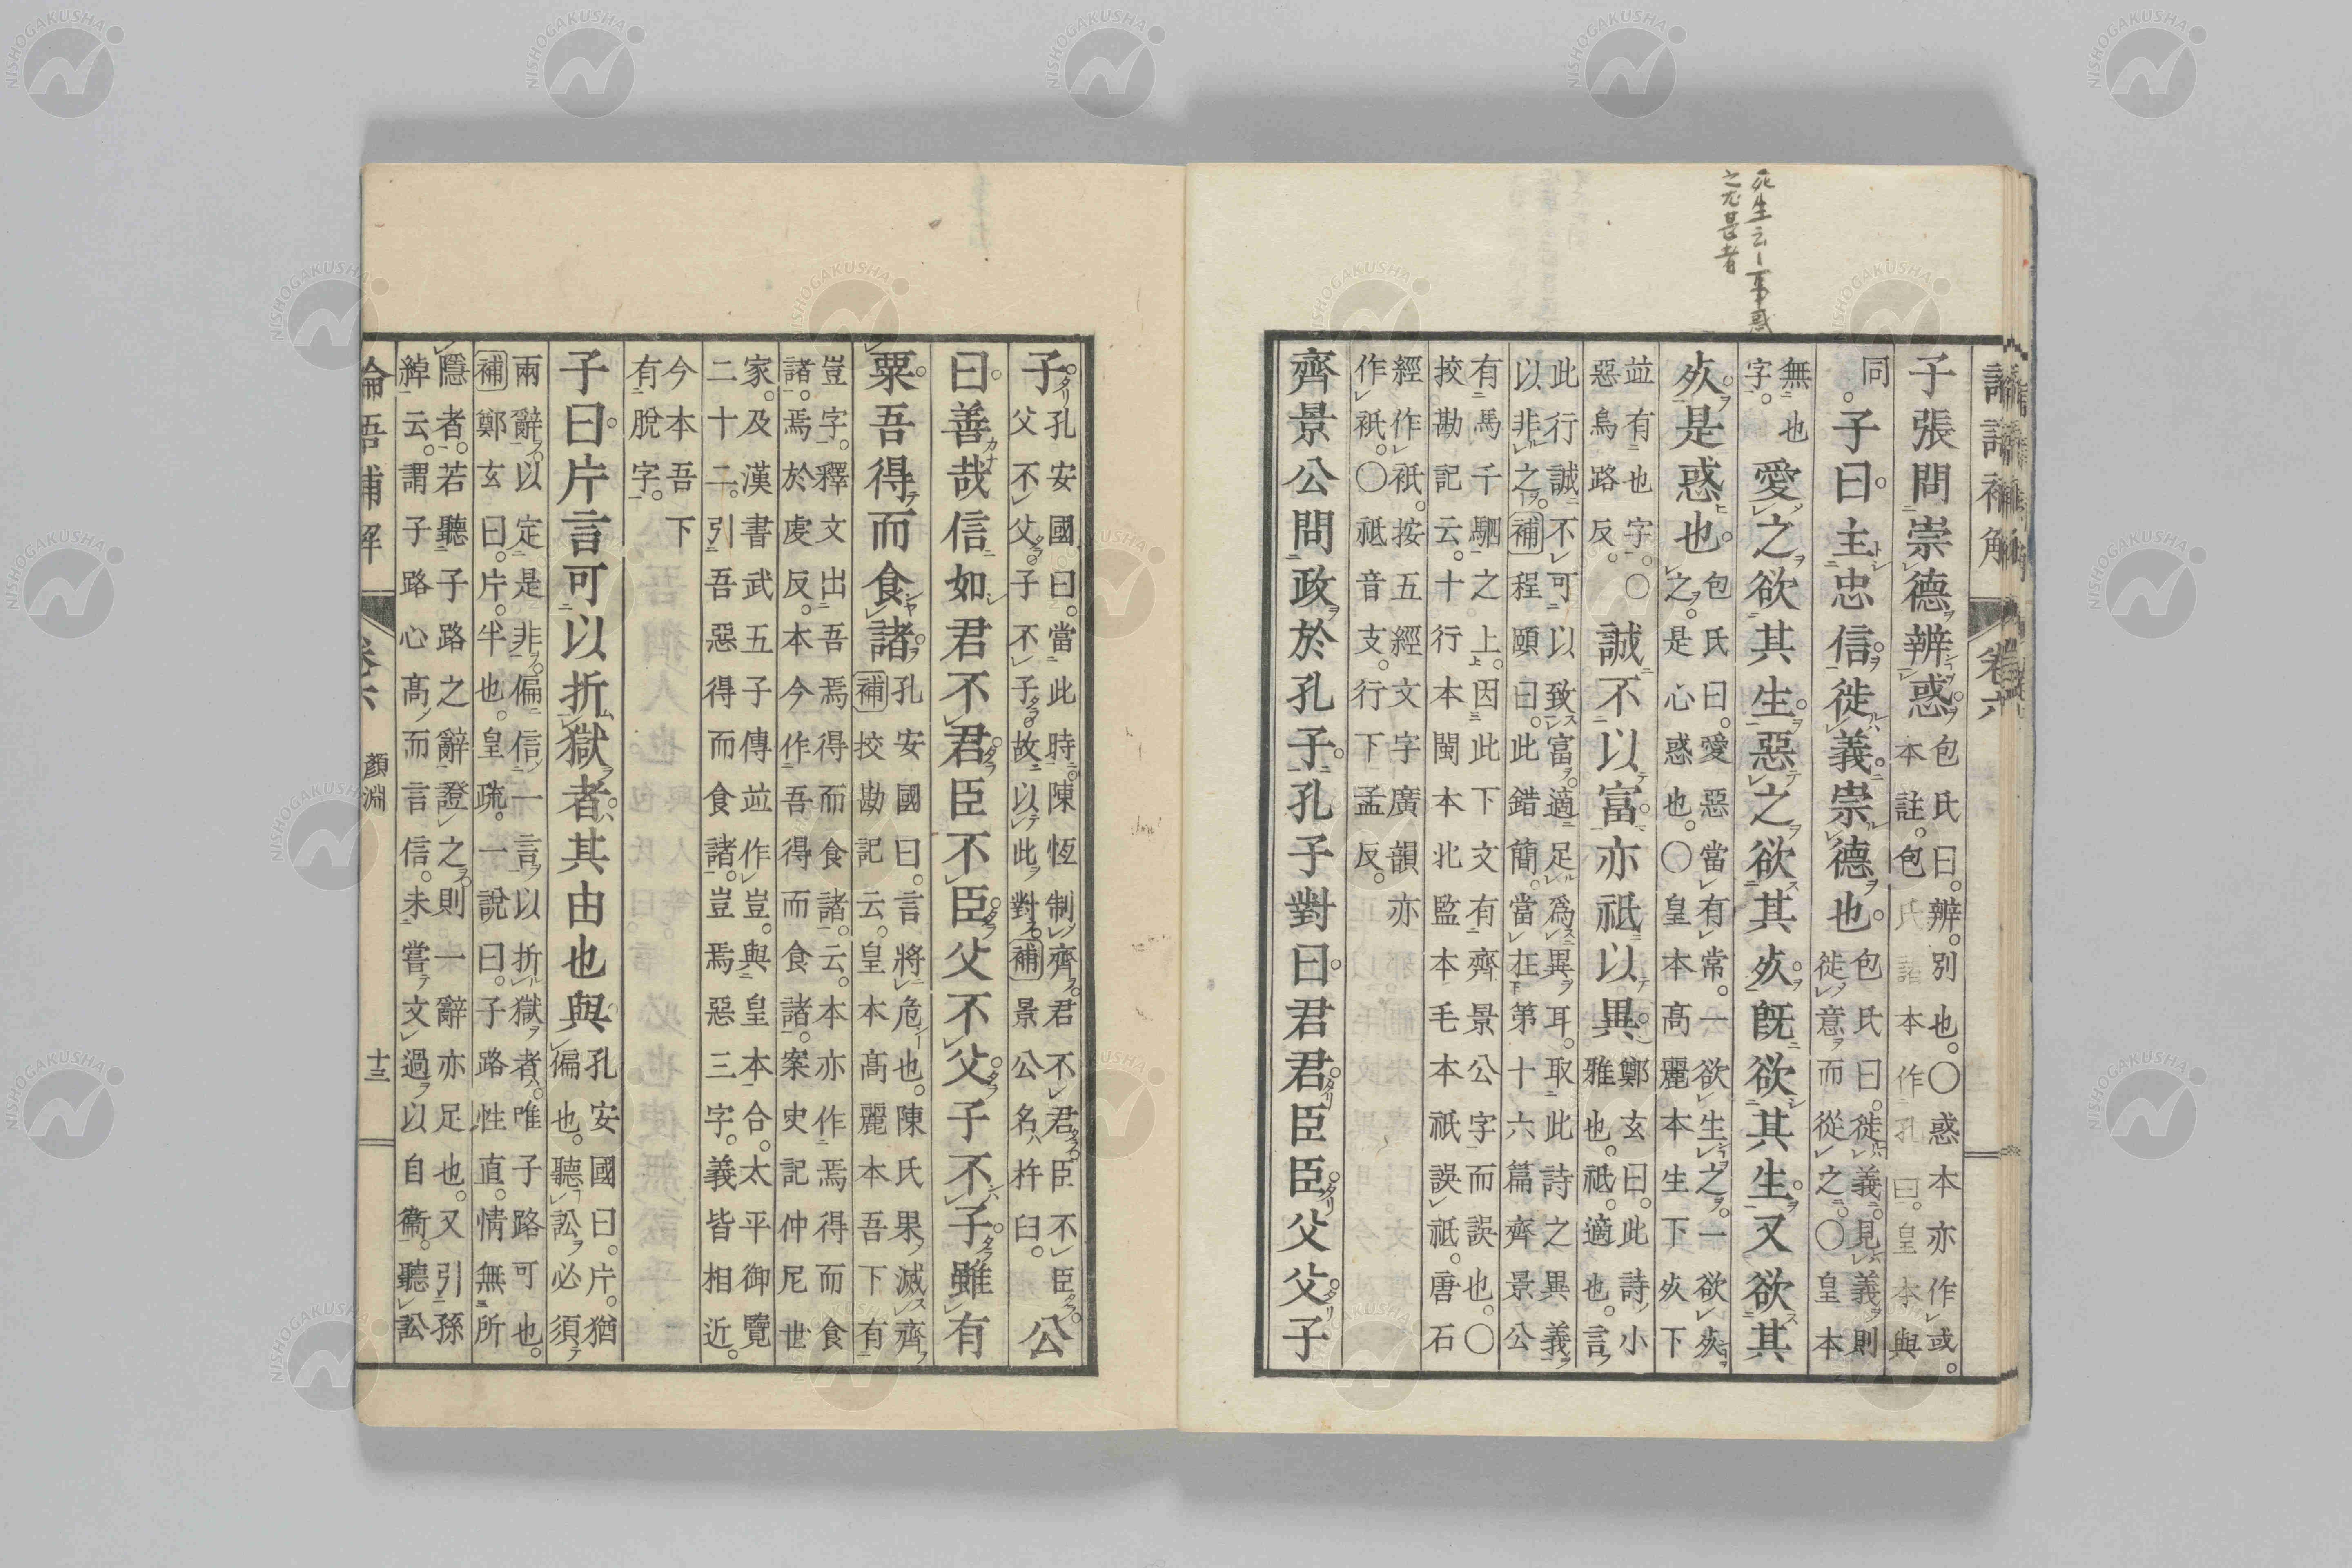 死生云〻事惑
之尤甚者
卷六
子張問崇德辨惑。
包氏曰。辨。別也。〇惑本亦作或。
本註。包氏諸本作孔曰。皇本與
同。
子曰。主忠信。徙義。崇德也。
包氏曰。徙義。見義則
徙意而從之。〇皇本
無也
字。
愛之欲其生。惡之欲其死。既欲其生。又欲其
死。是惑也。
包氏曰。愛惡當有常。一欲生之。一欲死
之。是心惑也。〇皇本高麗本生下死下
竝有也字。〇
惡烏路反。
誠不以富。亦祇以異。
鄭玄曰。此詩小
雅也。祇。適也。言
此行誠不可以致富。適足爲異耳。取此詩之異義
以非之。補程頤曰。此錯簡。當在第十六篇齊景公
有馬千駟之上。因此下文有齊景公字而誤也。〇
挍勘記云。十行本閩本北監本毛本祇誤祗。唐石
經作祇。按五經文字廣韻亦
作祇。〇祇音支。行下孟反。
齊景公問政於孔子。孔子對曰。君君臣臣父父子
子。
孔安國曰。當此時。陳恆制齊。君不君。臣不臣。
父不父。子不子。故以此對。補景公名杵臼。
公
曰。善哉信如君不君臣不臣父不父子不子雖有
粟。吾得而食諸。
孔安國曰。言將危也。陳氏果滅齊
補挍勘記云。皇本高麗本吾下有
豈字。釋文出吾焉得而食諸云。本亦作焉得而食
諸。焉於虔反。本今作吾得而食諸。案史記仲尼世
家。及漢書武五子傳竝作豈。與皇本合。太平御覽
二十二。引吾惡得而食諸。豈焉惡三字。義皆相近。
今本吾下
有脫字。
子曰。片言可以折獄者。其由也與
孔安國曰。片。猶
偏也。聽訟必須
兩辭以定是非。偏信一言以折獄者。唯子路可也。
補鄭玄曰。片。半也。皇疏。一說曰。子路性直。情無所
隱者。若聽子路之辭證之。則一辭亦足也。又引孫
綽云。謂子路心高而言信。未嘗文過以自衞。聽訟
論語補解
卷六
顏淵
十三